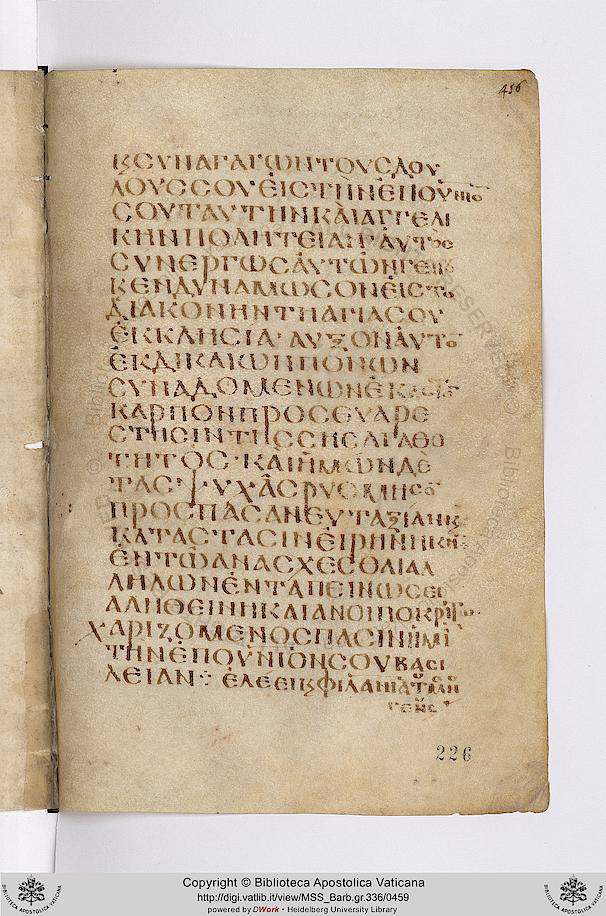 456
ΚΣΥΝΑΓΑΓΩΝΤΟΥΣΔΟΥ
ΛΟΥΣΣΟΥΕΙΣΤΗΝΕΠΟΥΝΙΟ
ΣΟΥΤΑΥΤΗΝΚΑΙΑΓΓΕΛΙ
ΚΗΝΠΟΛΙΤΕΙΑΝ
ΣΥΝΕΡΓΩΣΑΥΤΩΝ
ΚΕΝΔΥΝΑΜΩΣΟΝΕΙΣΤΟ
ΔΙΑΚΟΝΗΝΤΗΑΓΙΑΣΟΥ
ΕΚΚΛΗΣΙΑ· ΑΥΞΟΝΑΥΤΟ
ΕΚΔΙΚΑΙΩΝΠΟΝΩΝ
ΣΥΝΑΔΟΜΕΝΩΝ
ΚΑΡΠΟΝΠΡΟΣΕΥΑΡΕ
ΣΤΗΣΙΝΤΗΣΣΗΣΑΓΑΘΟ
ΤΗΤΟΣ· ΚΑΙΗΜΩΝΔΕ
ΤΑΣΨΥΧΑΣΡΥΘΜΗΣΟ
ΠΡΟΣΠΑΣΑΝΕΥΤΑΞΙΑΝΚ
ΚΑΤΑΣΤΑΣΙΝΕΙΡΗΝΙΚΗ
ΕΝΤΩΑΝΑΣΧΕΣΘΑΙΑΛ
ΛΗΛΩΝΕΝΤΑΠΕΙΝΩΣΕΙ
ΑΛΗΘΕΙΝΗΚΑΙΑΝΟΙΠΟΚΡΙΤΩ
ΧΑΡΙΖΟΜΕΝΟΣΠΑΣΙΝΗΜΙ
ΤΗΝΕΠΟΥΝΙΟΝΣΟΥΒΑΣΙ
ΛΕΙΑΝ⁘ ΕΛΕΕΙ
226
Copyright © Biblioteca Apostolica Vaticana
http://digi.vatlib.it/view/MSS_Barb.gr.336/0459
powered by DWork • Heidelberg University Library